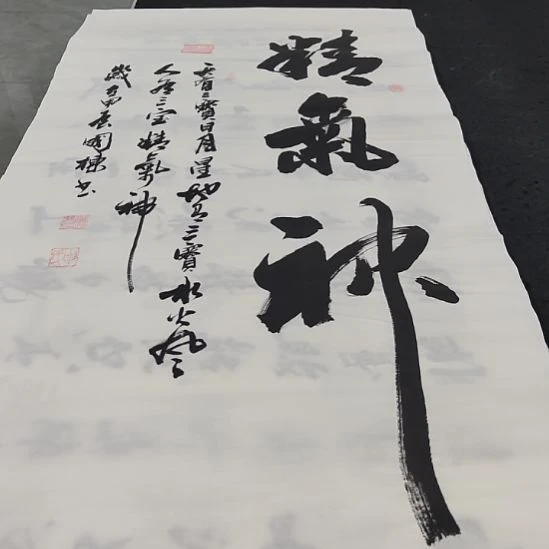 精氣神
天有三寶日月星地有三寶水火風
人有三宝精氣神
歲在
國棟书